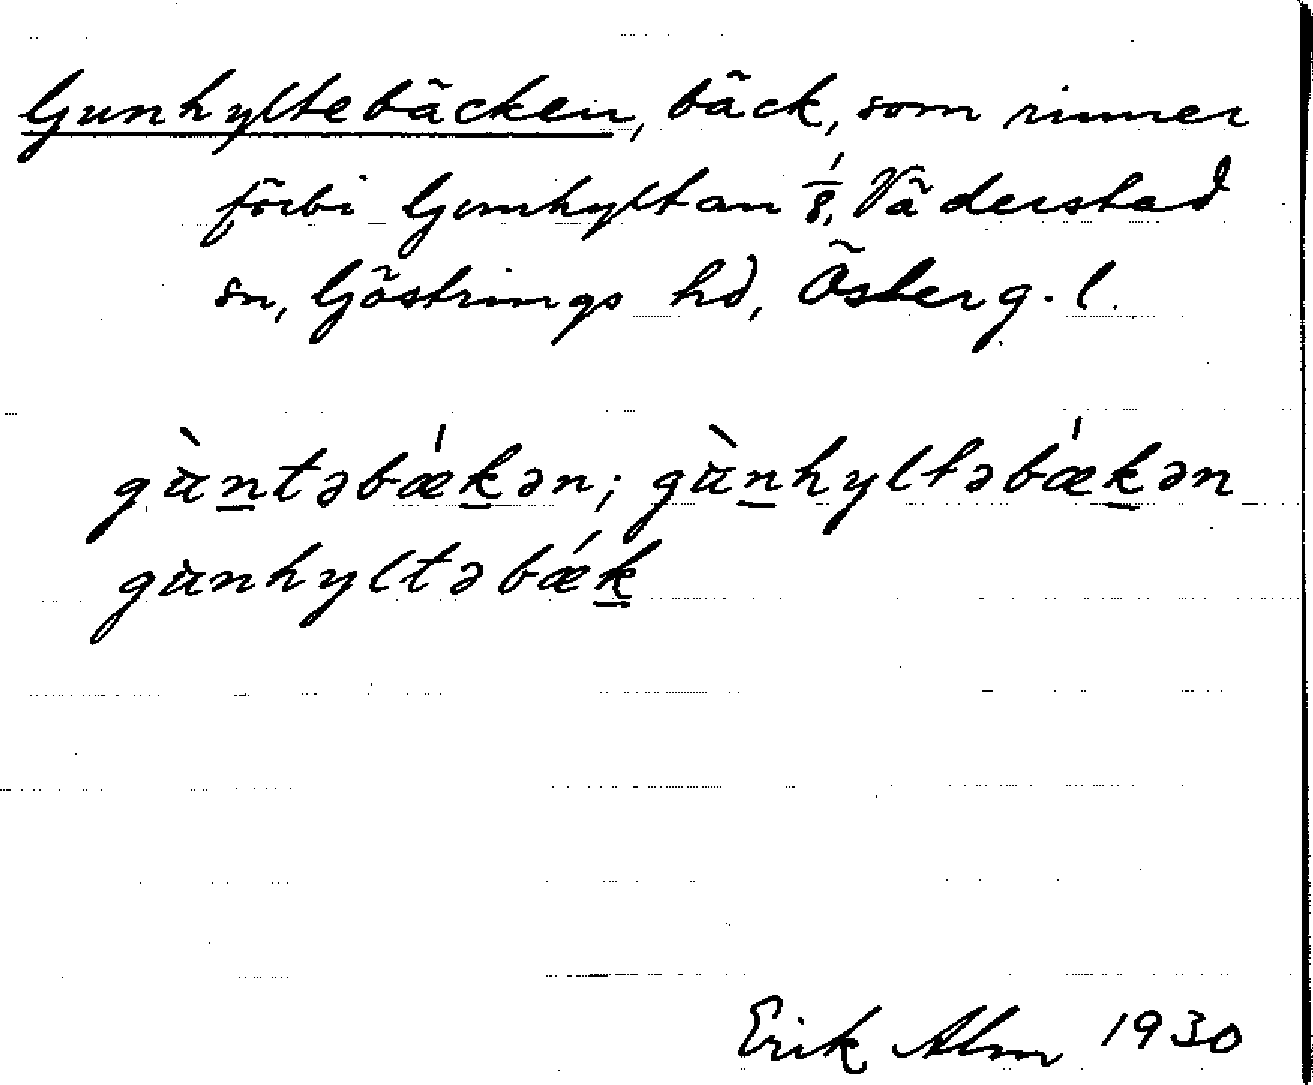 Gunhyltebäcken, bäck, som rinner
förbi Gunhyltan 1/8, Väderstad
sn, Göstrings hd, Österg. l.
gùntəbǽkən; gùnhyltəbǽkən
gùnhyltəbǽk
Erik Alm 1930